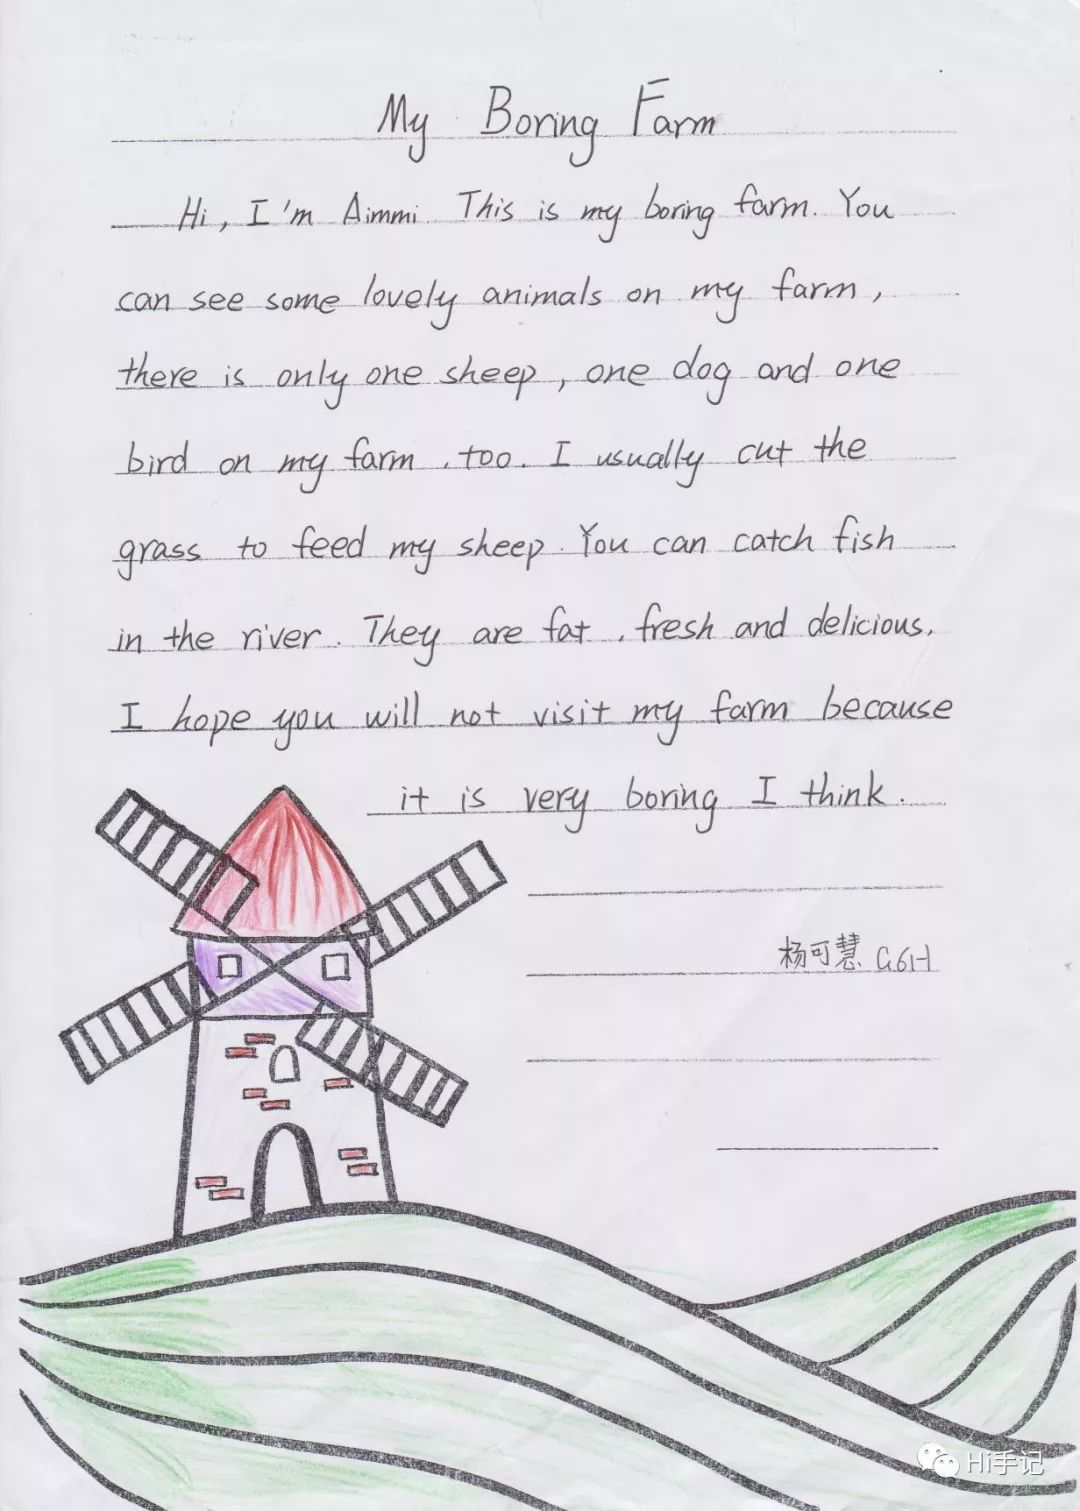 My Boring Farm
Hi, I'm Aimmi. This is my boring farm. You
can see some lovely animals on my farm,
there is only one sheep, one dog and one
bird on my farm, too. I usually cut the
grass to feed my sheep. You can catch fish
in the river. They are fat, fresh and delicious.
I hope you will not visit my farm because
it is very boring I think.
杨可慧 G61-1
Hi手记